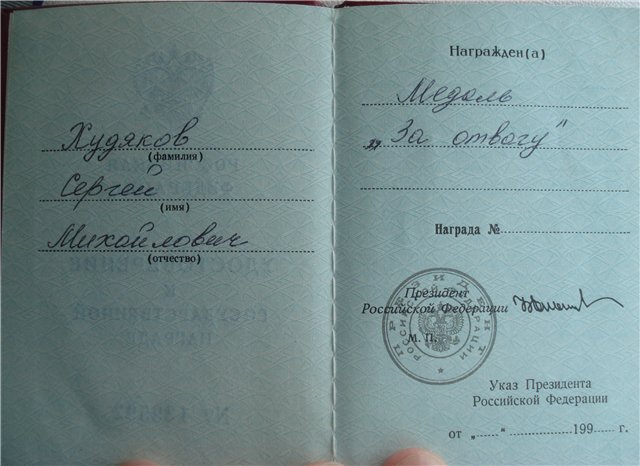 Худяков
(фамилия)
Сергей
(имя)
Михайлович
(отчество)
Награжден(а)
Медаль
„За отвагу"
Награда №
ПРЕЗИДЕНТ
РОССИЙСКОЙ ФЕДЕРАЦИИ
Президент
Российской Федерации
М. П.
Указ Президента
Российской Федерации
от „ “ 199 г.